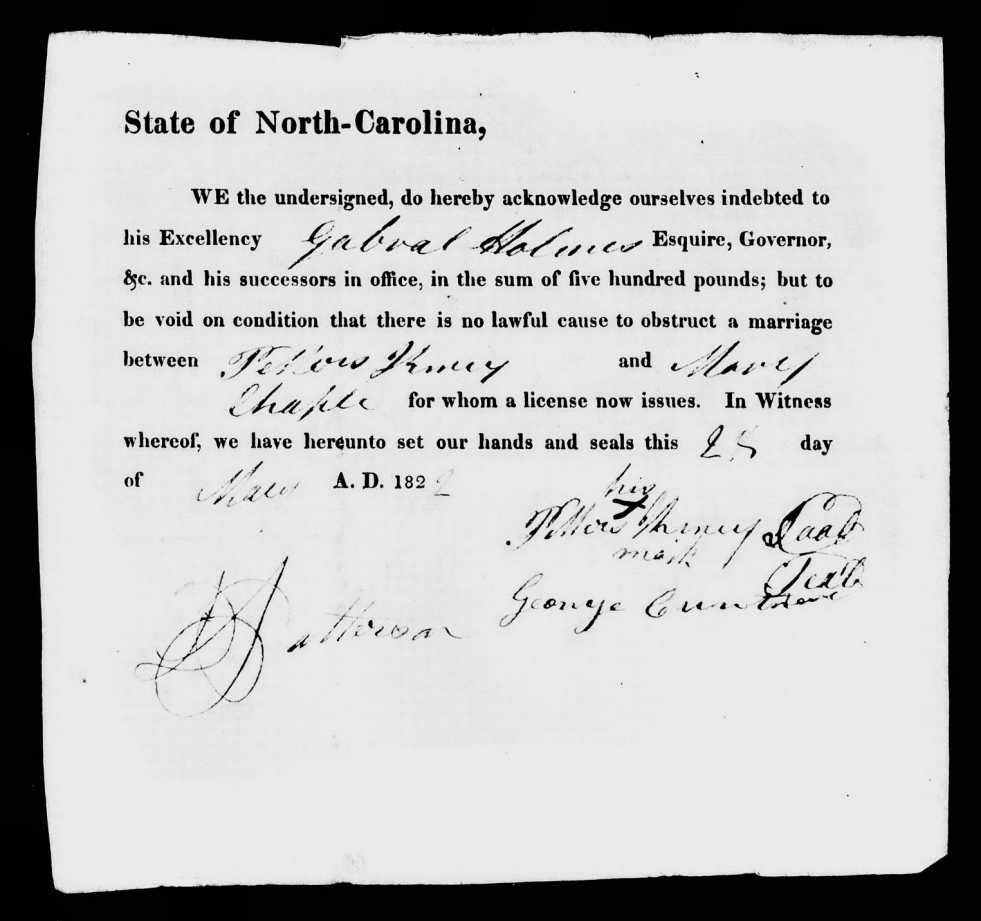 State of North-Carolina,
WE the undersigned, do hereby acknowledge ourselves indebted to
his Excellency Gabral Holmes Esquire, Governor,
&c. and his successors in office, in the sum of five hundred pounds; but to
be void on condition that there is no lawful cause to obstruct a marriage
between and Mary
Chaple for whom a license now issues. In Witness
whereof, we have hereunto set our hands and seals this 28 day
of A. D. 1822
his
X
mark
George